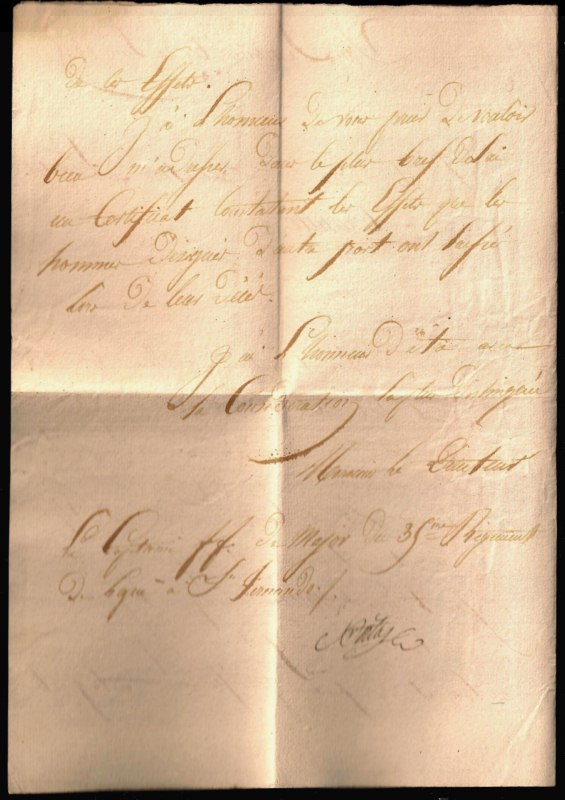 de les Effets.
J'ai l'honneur de vous prier de vouloir
bien m'adresser dans le plus bref délai
un Certificat Constatant les Effets que les
hommes désignés d'autre part ont laissé
lors de leur décès.
J'ai l'honneur d'être avec
la Considération la plus distinguée
Monsieur le Directeur
Le Capitaine ff. de Major du 35me Régiment
de ligne à Sn. Fernando./.